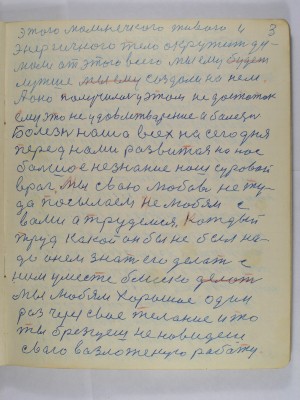 этого маленечкого живого и 3
энергичного тело окружит ду-
мали от этого всего мы ему будем
лутше мы ему создали на нем.
Аоно получилос у этом не достаток
ему это не удовлитварение а балезн
Болезн наша всех на сегодня
перед нами развитая на нас
балшое незнание наш суровой
враг, Мы сваю любовь не ту-
да посылаем не любям с
вами а трудемся. Каждый
труд какой он бы не был на-
до о нем знат его делат с
ним умести близко делат
Мы любям харошое один
раз через свае желание и то
ты брезгуеш не навидеш
сваю возложеную работу.